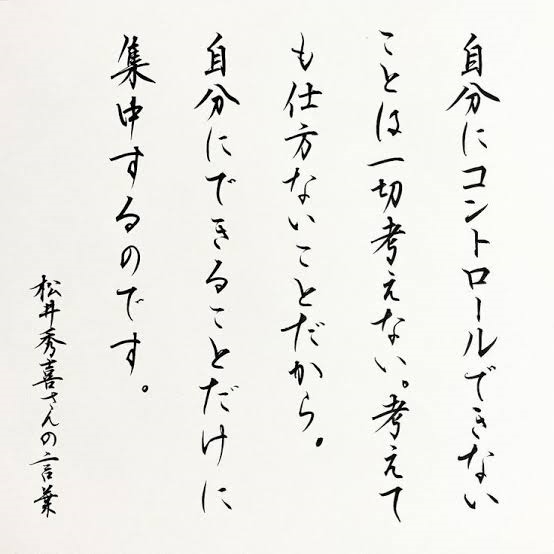 自分にコントロールできない
ことは一切考えない。考えて
も仕方ないことだから。
自分にできることだけに
集中するのです。
松井秀喜さんの言葉